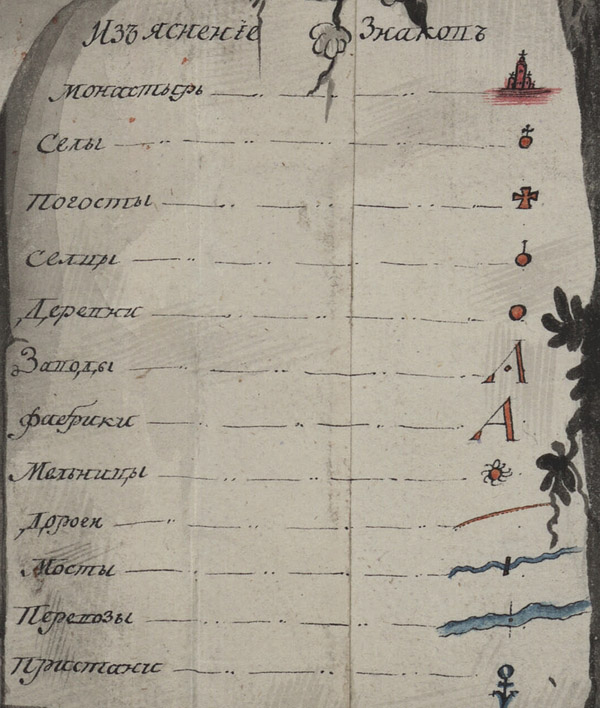 Изъясненіе Знаковъ
Монастырь
Селы
Погосты
Селцы
Деревни
Заводы
фабрики
Мельницы
Дороги
Мосты
Перевозы
Пристани